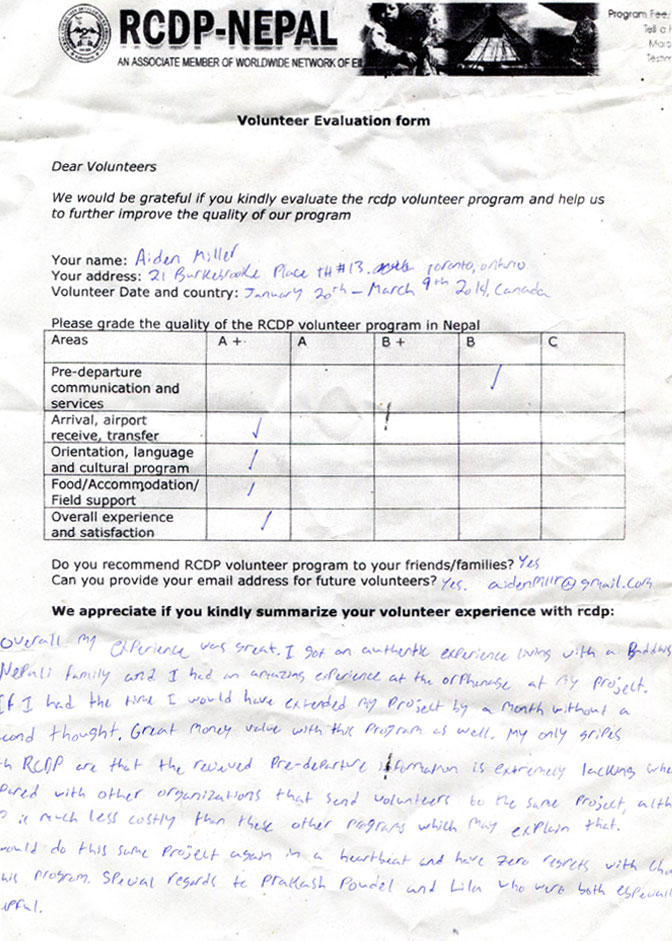 RCDP-NEPAL
AN ASSOCIATE MEMBER OF WORLDWIDE NETWORK OF
Program Fee
Tell a
Testim
Volunteer Evaluation form
Dear Volunteers
We would be grateful if you kindly evaluate the rcdp volunteer program and help us
to further improve the quality of our program
Your name: Aiden Miller
Your address: 21 Burkebrooke Place TH #13. Toronto, Ontario
Volunteer Date and country: January 20th - March 9th 2014, Canada
Please grade the quality of the RCDP volunteer program in Nepal
Areas A + A B + B C
Pre-departure
communication and
services
Arrival, airport
receive, transfer
Orientation, language
and cultural program
Food/Accommodation/
Field support
Overall experience
and satisfaction
Do you recommend RCDP volunteer program to your friends/families? Yes
Can you provide your email address for future volunteers? Yes. aidenmillr@gmail.com
We appreciate if you kindly summarize your volunteer experience with rcdp:
Overall my experience was great. I got an authentic experience living with a Buddhis
Nepali family and I had an amazing experience at the orphanage at my project.
If I had the time I would have extended my project by a month without a
cond thought. Great money value with this program as well. My only gripes
th RCDP are that the recieved pre-departure information is extremely lacking whe
pared with other organizations that send volunteers to the same project, alth
is much less costly than these other programs which may explain that.
ould do this same project again in a heartbeat and have zero regrets with cho
his program. Special regards to Prakash Poudel and Lila who were both especial
lpful.